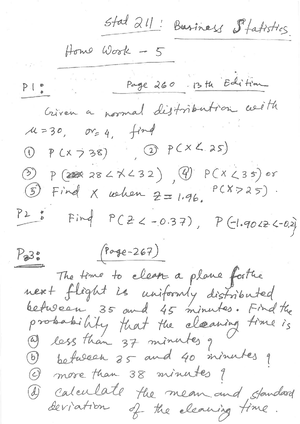 Stat 211: Business Statistics
Home Work - 5
P1: Page 260 13th Edition
Given a normal distribution with
μ=30, σ=4, find
① P(X>38) ② P(X<25)
③ P(28<X<32), ④ P(X<35) or P(X>25).
⑤ Find X when Z=1.96.
P2: Find P(Z<-0.37), P(-1.90<Z<-0.2)
P3: (Page-267)
The time to clean a plane for the
next flight is uniformly distributed
between 35 and 45 minutes. Find the
probability that the cleaning time is
ⓐ less than 37 minutes?
ⓑ between 35 and 40 minutes?
ⓒ more than 38 minutes?
ⓓ calculate the mean and standard
deviation of the cleaning time.